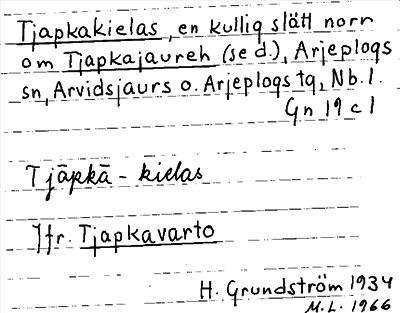 Tjapkakielas, en kullig slätt norr
om Tjapkajaureh (se d.), Arjeplogs
sn, Arvidsjaurs o. Arjeplogs tg, Nb. l.
Gn 19 c 1
Tjāpkā - kielas
Jfr. Tjapkavarto
H. Grundström 1934
M.L. 1966